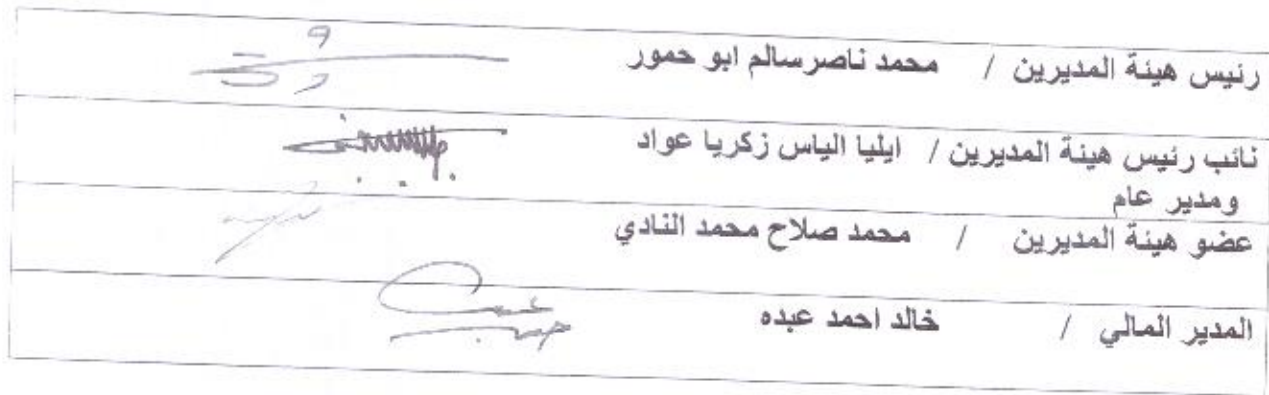 رئيس هيئة المديرين / محمد ناصرسالم ابو حمور
نائب رئيس هيئة المديرين / ايليا الياس زكريا عواد
ومدير عام
عضو هيئة المديرين / محمد صلاح محمد النادي
المدير المالي / خالد احمد عبده